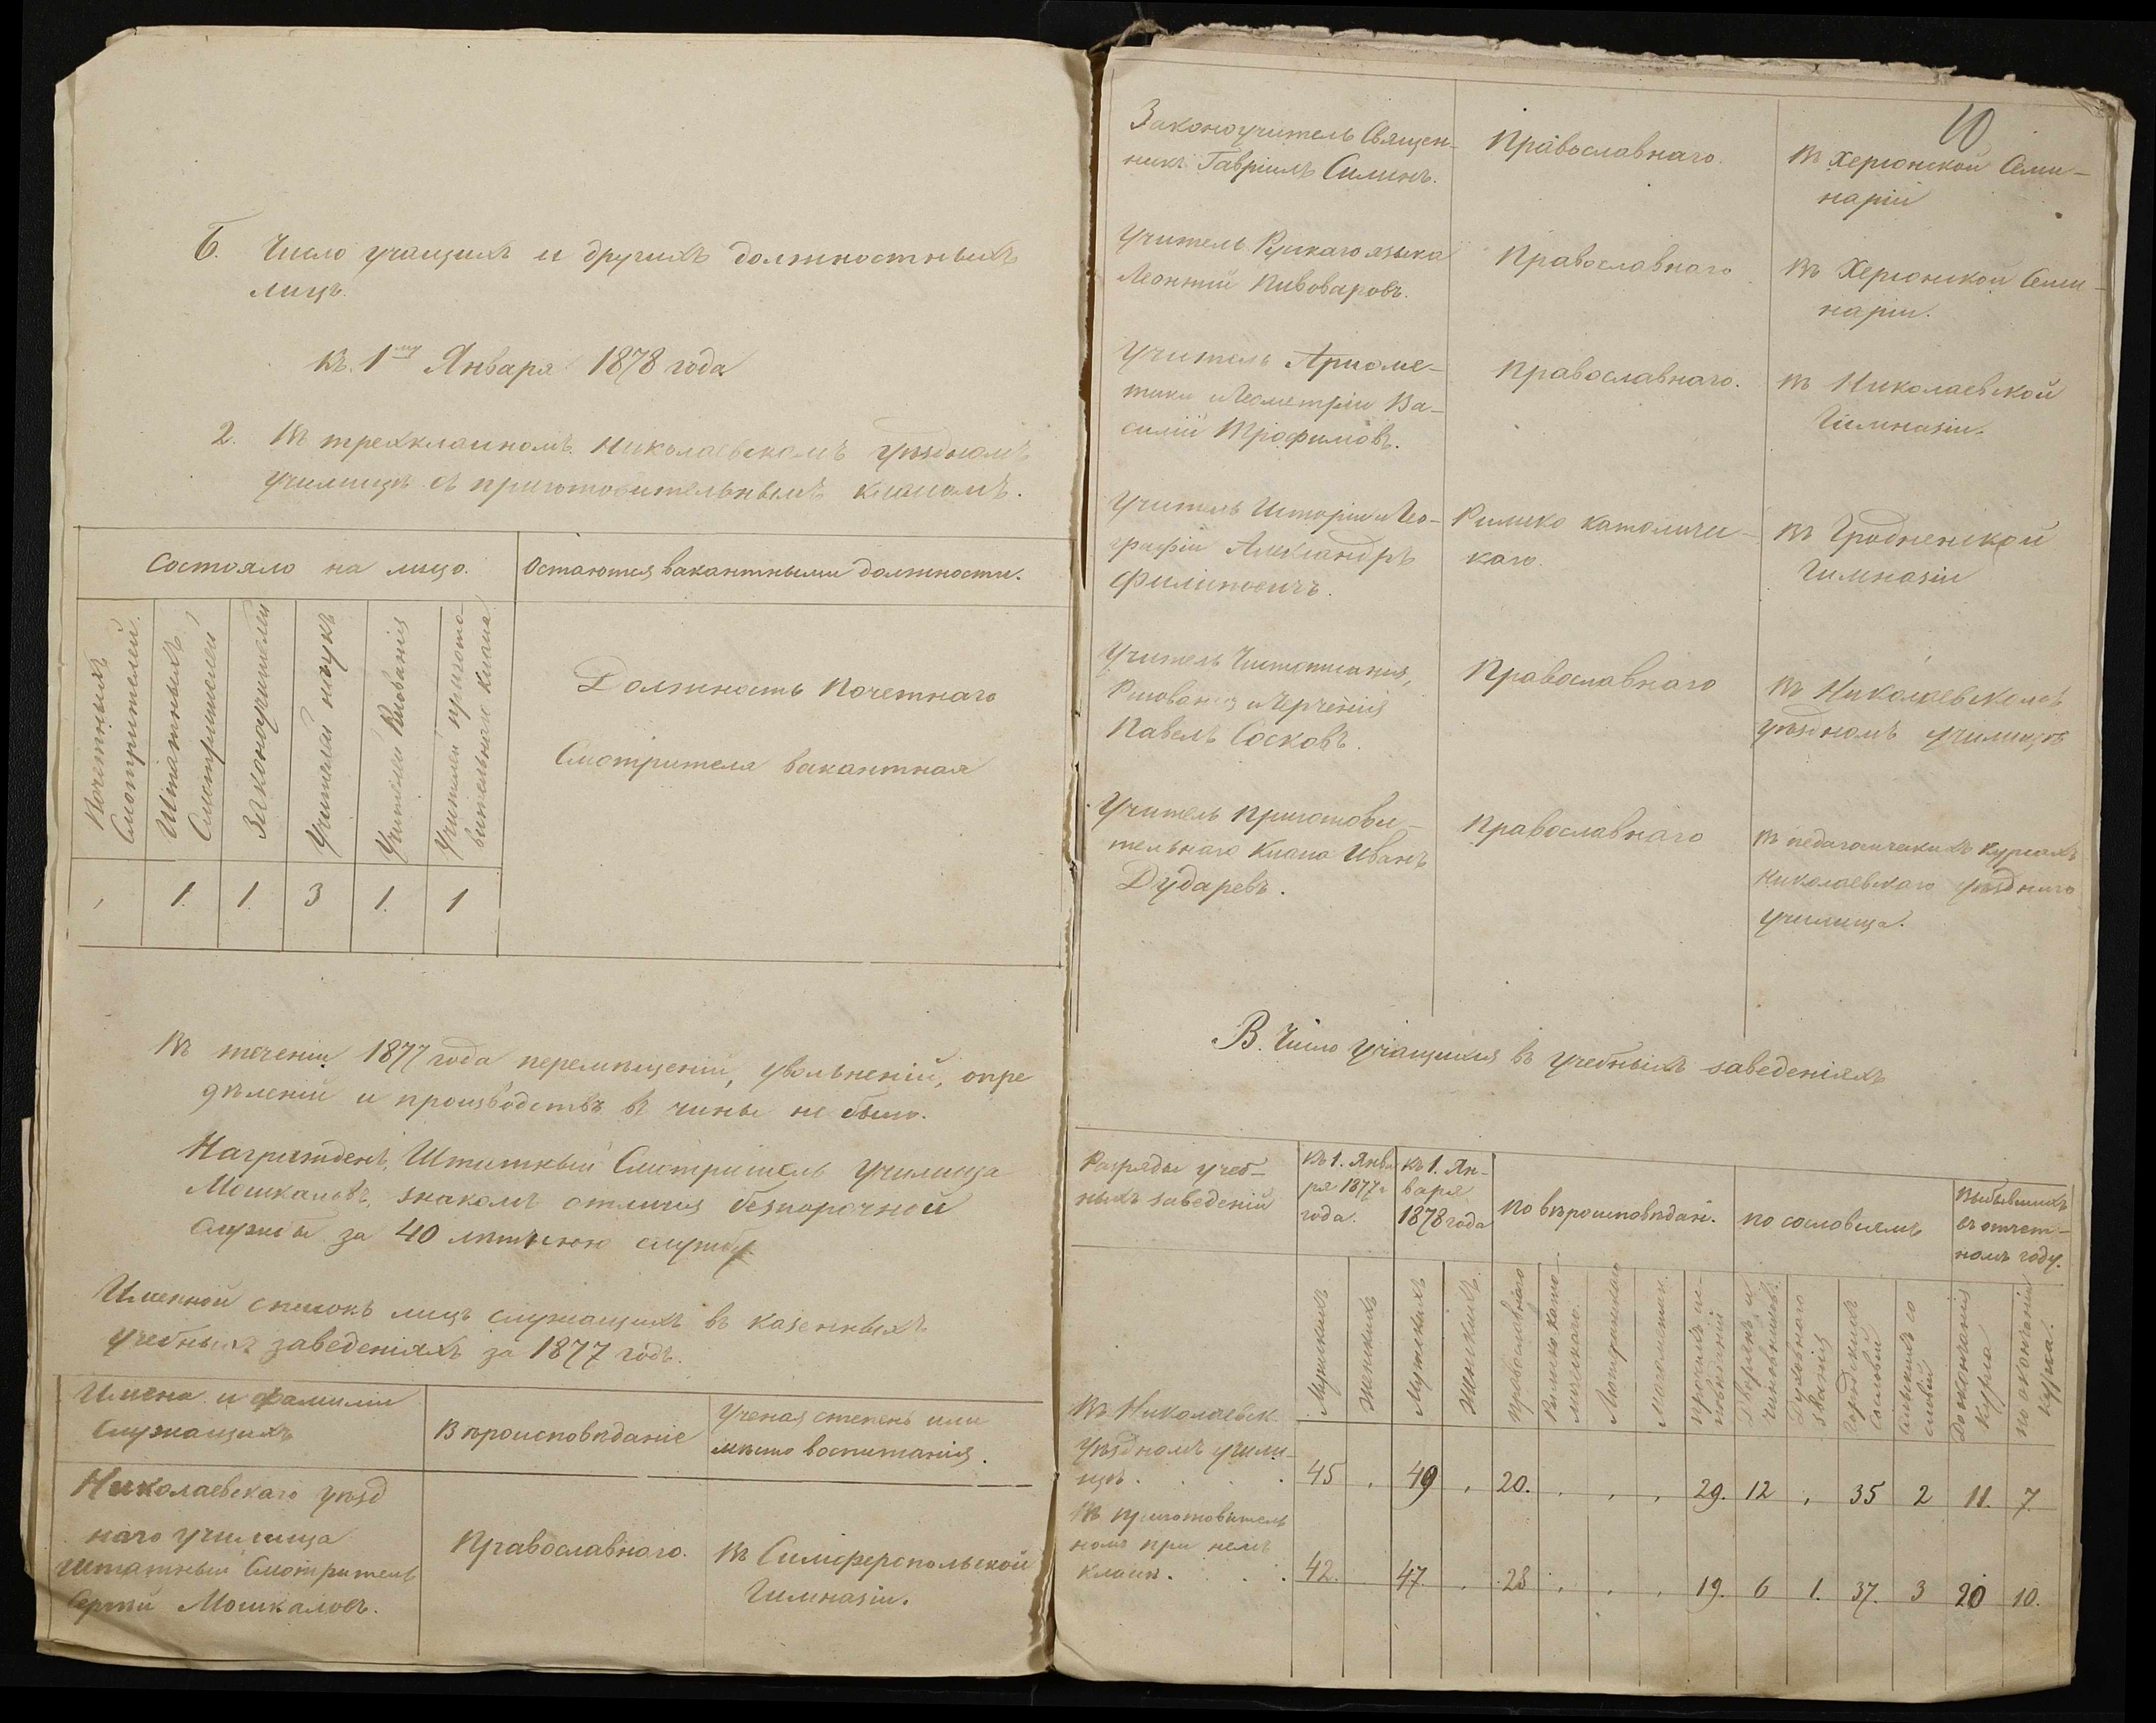 Б. Число учащихъ и другихъ должностныхъ
лицъ.
Къ 1му Января 1878 года
2. Въ трехклассномъ Николаевскомъ уѣздномъ
училищѣ съ приготовительнымъ классомъ.
Состояло на лицо.
Остаются вакантными должности.
Почетныхъ
Смотрителей.
Штатныхъ
Смотрителей
Законоучителей
Учителей наукъ
Учителей Рисованія
Учителей пригото-
вительнаго класса
Должность Почетнаго
Смотрителя вакантная
, 1. 1. 3 1. 1
Въ теченіи 1877 года перемѣщеній, увольненій, опре
дѣленій и производствъ въ чины не было.
Награжденъ, Штатный Смотритель училища
Мошкаловъ, знакомъ отличія безпорочной
службы за 40 лѣтнюю службу
Именной списокъ лицъ служащихъ въ казенныхъ
учебныхъ заведеніяхъ за 1877 годъ.
Имена и фамиліи
служащихъ
Вѣроисповѣданіе
Ученая степень или
мѣсто воспитанія.
Николаевскаго уѣзд
наго училища
штатный Смотритель
Сергѣй Мошкаловъ.
Православнаго.
Въ Симферопольской
Гимназіи.
10
Законоучитель Священ-
никъ Гавріилъ Силинъ.
Православнаго.
Въ Херсонской Семи-
наріи
Учитель Рускаго языка
Леонтій Пивоваровъ.
Православнаго
Въ Херсонской Семи-
наріи.
Учитель Ариѳме-
тики и Геометріи Ва-
силій Трофимовъ.
Православнаго.
Въ Николаевской
Гимназіи.
Учитель Исторіи и Гео-
графіи Александръ
Филиповичъ.
Римско католичес-
каго.
Въ Гродненской
Гимназіи
Учитель Чистописанія,
Рисованія и Черченія
Павелъ Сосковъ.
Православнаго
Въ Николаевскомъ
уѣздномъ училищѣ
Учитель приготови-
тельнаго класса Иванъ
Дударевъ.
Православнаго
Въ педагогическихъ курсахъ
Николаевскаго уѣзднаго
училища.
В. Число учащихся въ учебныхъ заведеніяхъ
Разряды учеб-
ныхъ заведеній
Къ 1. Янва
ря 1877
года.
Къ 1. Ян-
варя
1878 года
по вѣроисповѣдан.
по сословіямъ
Выбывшихъ
въ отчет-
номъ году.
Мужскихъ
Женскихъ
Мужскихъ
Женскихъ.
Православнаго
Римско като-
лическаго.
Лютеранскаго
Магометан.
прочихъ ис-
повѣданій
Дворянъ и
чиновниковъ.
Духовнаго
званія
Городскихъ
сословій
Сельскихъ со
словій
До окончанія
курса
по окончаніи
курса.
Въ Николаевск.
уѣздномъ учили-
щѣ. . . . 45 , 49 , 20. , , , 29. 12 , 35 2 11. 7
Въ приготовитель
номъ при немъ
классѣ. . . . 42. 47. , 28 , , , 19. 6 1. 37. 3 20 10.